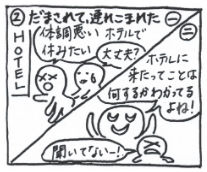 ② だまされて、連れこまれた
HOTEL
一
体調悪い
ホテルで
休みたい
大丈夫?
二
ホテルに
来たってことは
何するかわかってる
よね!
聞いてないー!